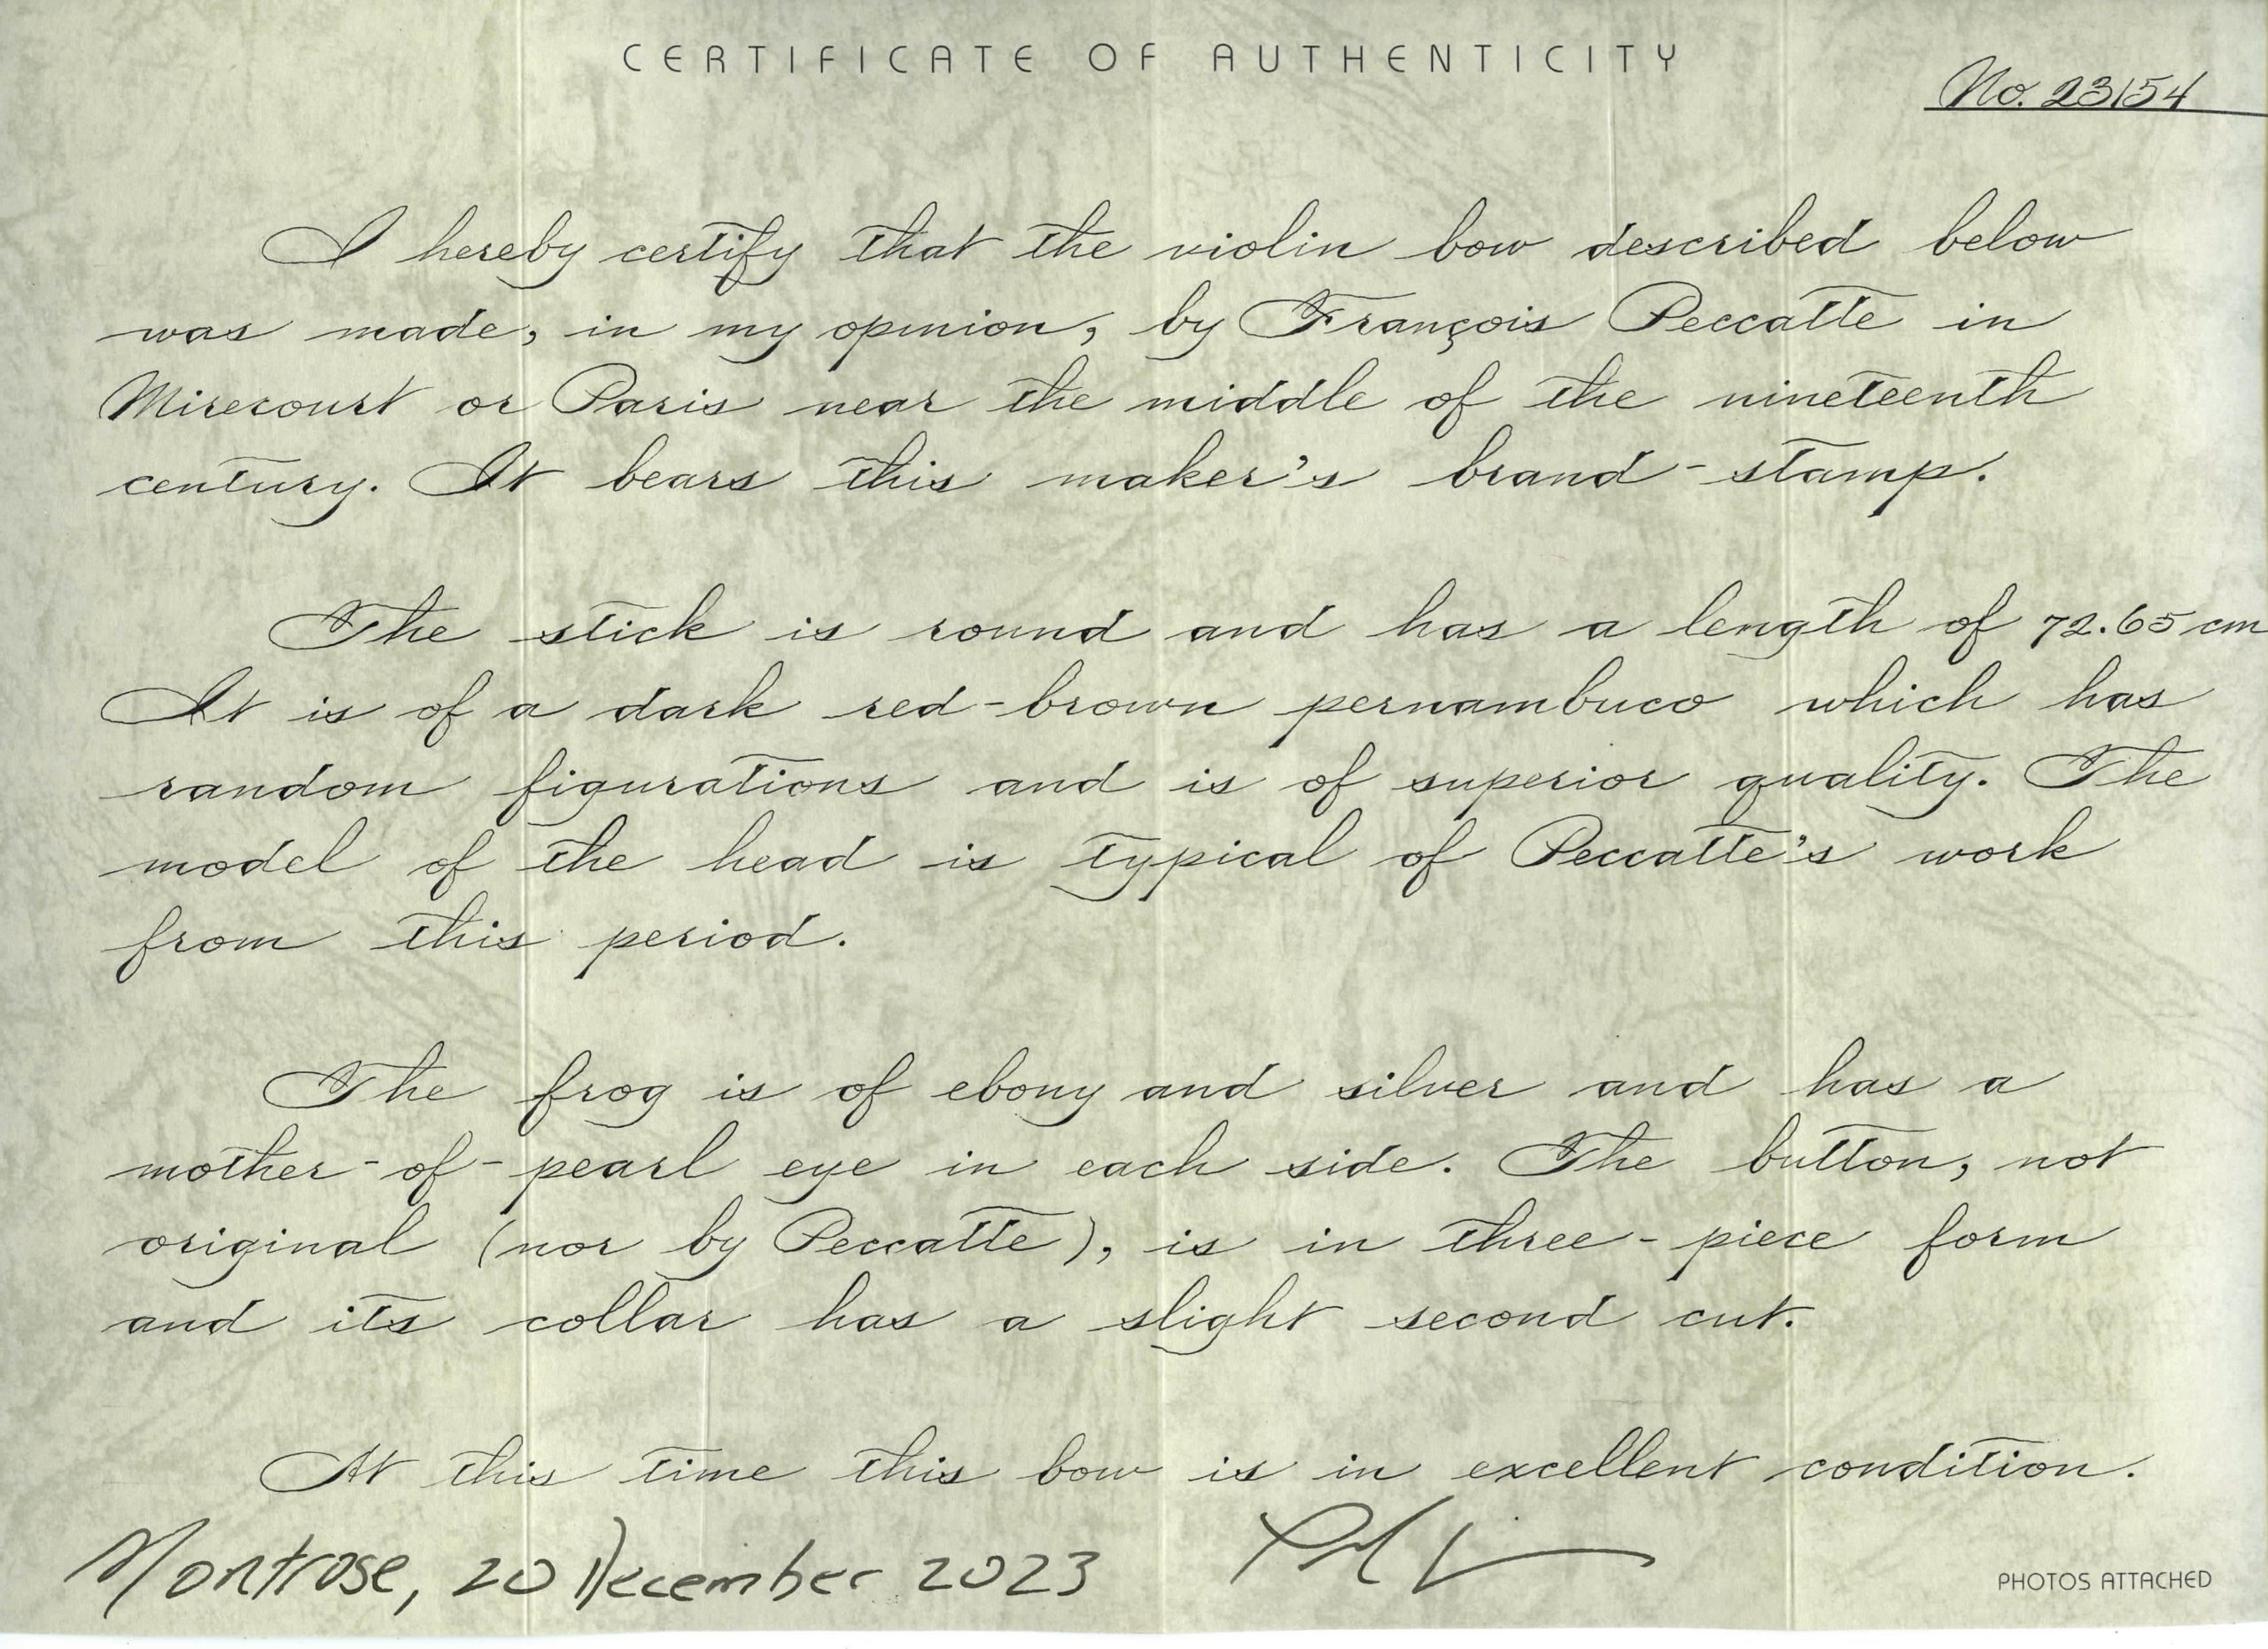 CERTIFICATE OF AUTHENTICITY
No. 23154
I hereby certify that the violin bow described below
was made, in my opinion, by François Peccatte in
Mirecourt or Paris near the middle of the nineteenth
century. It bears this maker's brand-stamp.
The stick is round and has a length of 72.65 cm
It is of a dark red-brown pernambuco which has
random figurations and is of superior quality. The
model of the head is typical of Peccatte's work
from this period.
The frog is of ebony and silver and has a
mother-of-pearl eye in each side. The button, not
original (nor by Peccatte), is in three-piece form
and its collar has a slight second cut.
At this time this bow is in excellent condition.
Montrose, 20 December 2023
PHOTOS ATTACHED